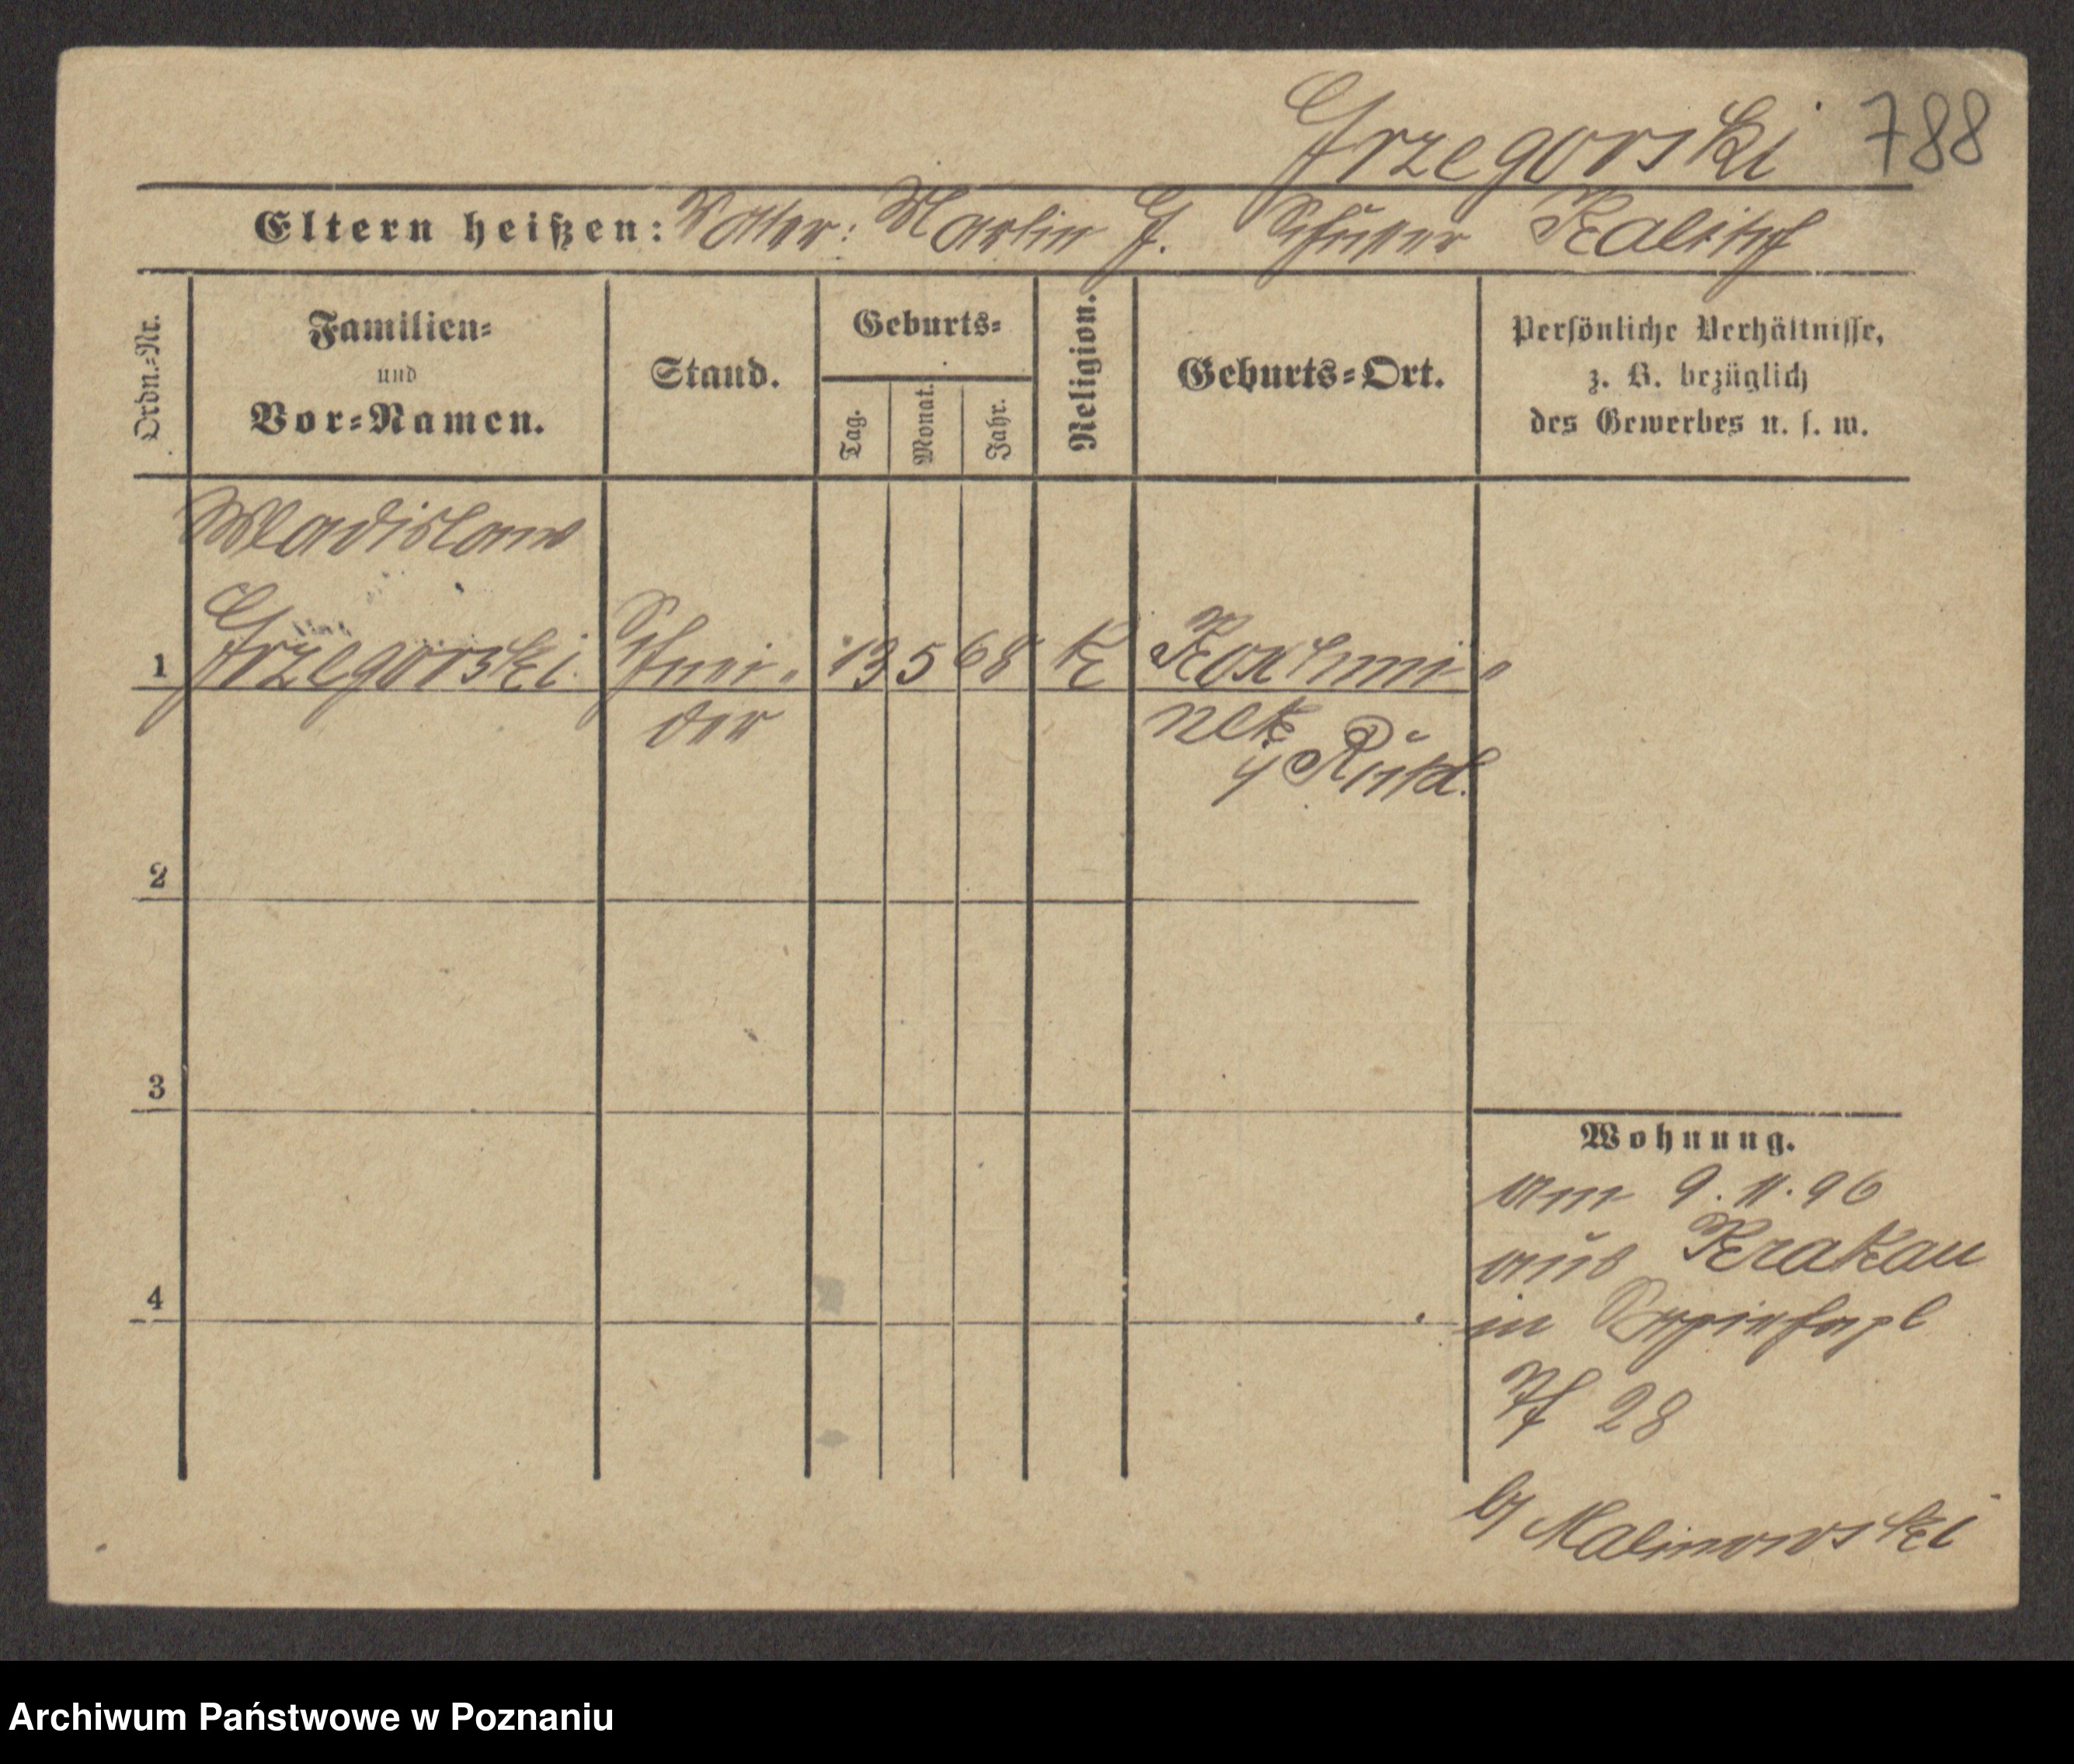 Grzegorski 788
Eltern heißen: Vater: Martin G. Kalisch
Ordn.-Nr.
Familien-
und
Vor-Namen.
Stand.
Geburts-
Tag.
Monat.
Jahr.
Religion.
Geburts-Ort.
Persönliche Verhältnisse,
z. B. bezüglich
des Gewerbes u. s. w.
Wladislaw
1 Grzegorski Schnei- 13 5 68 K Koschmi-
der nek
2
3
4
Wohnung.
am 9. 11. 96
aus Krakau
in
28
b/ Malinowski
Archiwum Państwowe w Poznaniu